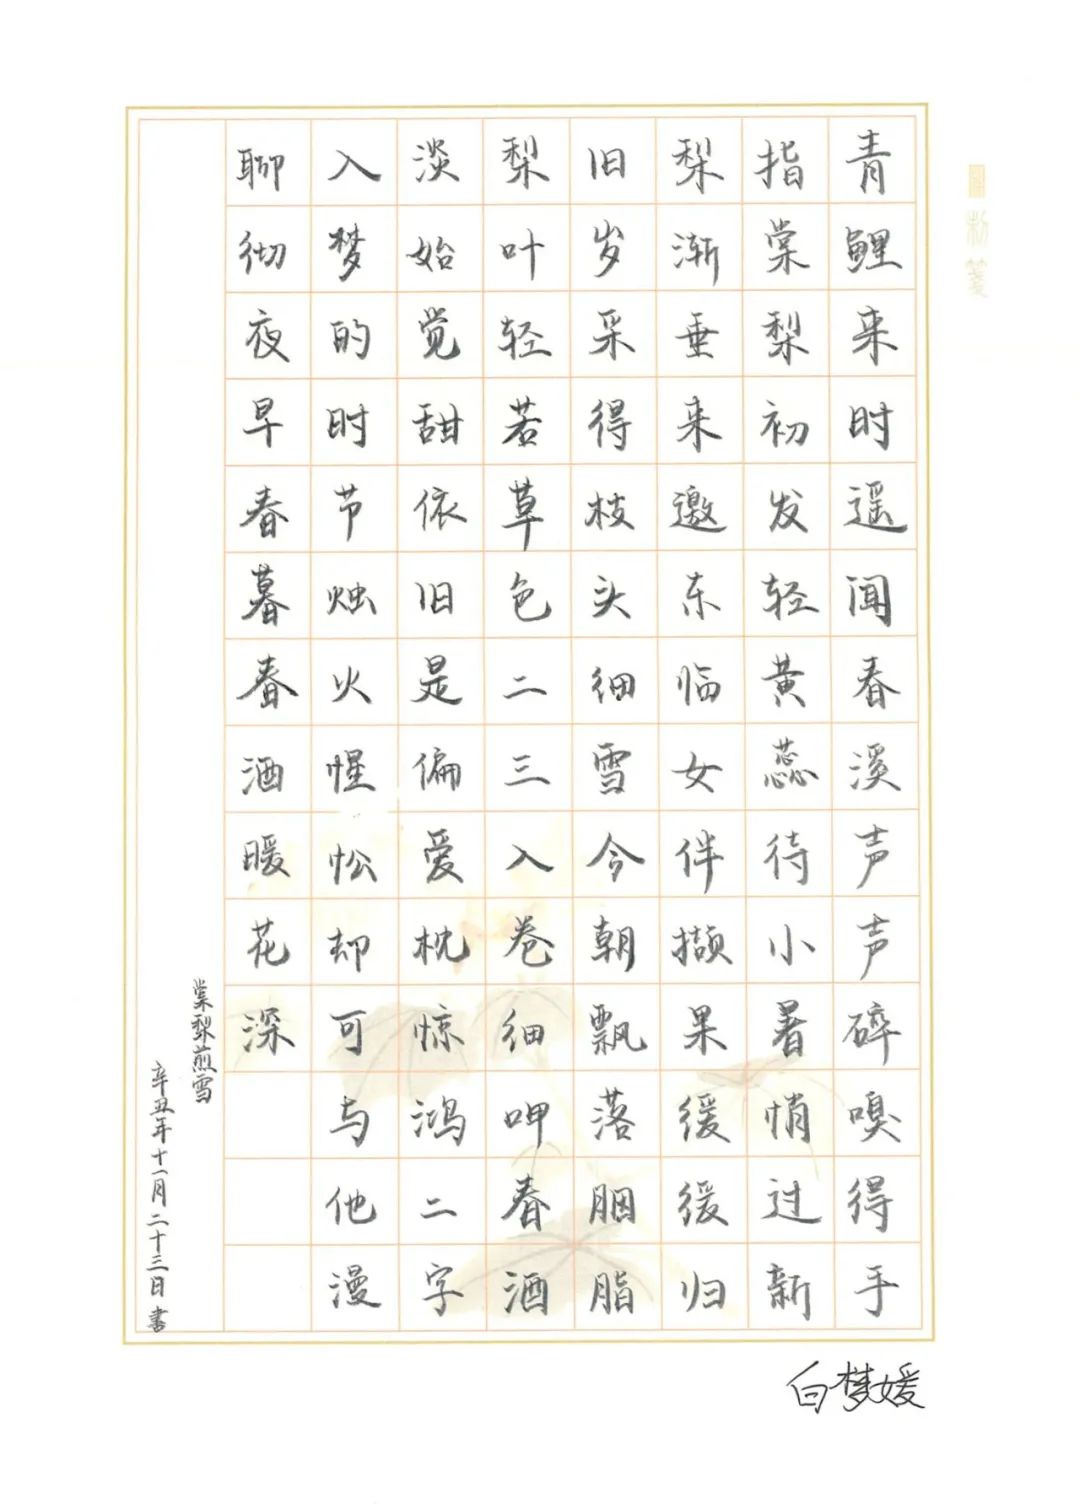 青鲤来时遥闻春溪声声碎嗅得手
指棠梨初发轻黄蕊待小暑悄过新
梨渐垂来邀东临女伴撷果缓缓归
旧岁采得枝头细雪今朝飘落胭脂
梨叶轻若草色二三入卷细呷春酒
淡始觉甜依旧是偏爱枕惊鸿二字
入梦的时节烛火惺忪却可与他漫
聊彻夜早春暮春酒暖花深
棠梨煎雪
辛丑年十一月二十三日书
白梦媛